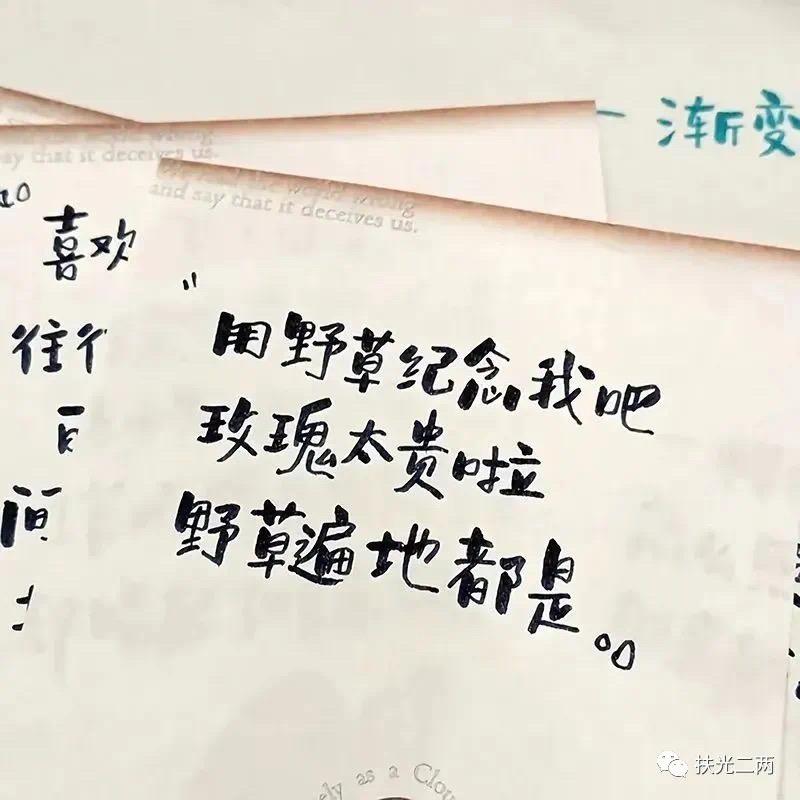 渐变
say that it deceives us.
and say that it deceives us.
喜欢
往往
"
用野草纪念我吧
玫瑰太贵啦
野草遍地都是。
as a Clou
扶光二两